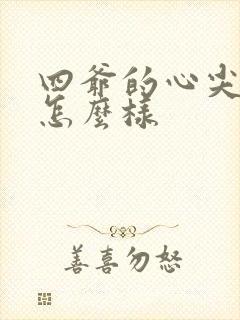 四爺的心尖
怎麼樣
善喜勿怒